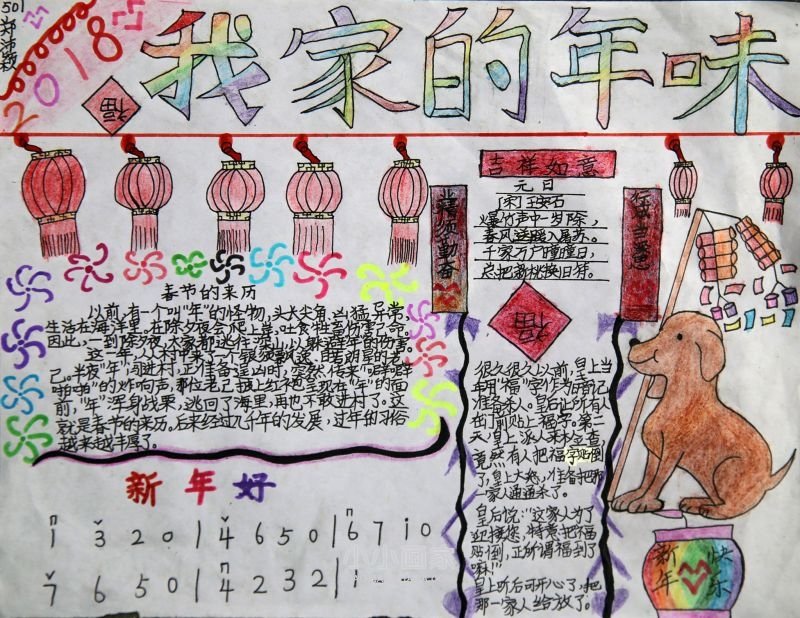 501
郑沛毅
2018
福
我家的年味
吉祥如意
元日
[宋]王安石
爆竹声中一岁除，
春风送暖入屠苏。
千家万户曈曈日，
总把新桃换旧符。
福
春节的来历
以前，有一个叫"年"的怪物，头大尖角，凶猛异常，
生活在海洋里，在除夕夜会爬上岸，吐食牲畜伤害人命，
因此，一到除夕夜，大家都逃往深山，以躲避年的伤害。
这一年，从村中来了一个银须飘逸，目若朗星的老
己。半夜"年"闯进村，正准备逞凶时，突然，传来"噼噼
啪啪"的炸响声，那位老己披上红袍，出现在"年"的面
前，"年"浑身战栗，逃回了海里，再也不敢进村了。这
就是春节的来历，后来经过几千年的发展，过年的习俗
越来越丰厚了。
新年好
1 3 2 0 | 4 6 5 0 | 6 7 1 0
7 6 5 0 | 4 2 3 2 | 1
很久很久以前，皇上
每用"福"字作为后前记
准备杀人。皇后让所有人
在门前贴上福字。第二
天，皇上派人来检查，
竟然有人把福字贴倒
了，皇上大怒，准备把那
一家人通通杀了。
皇后说："这家人为了
迎接您，特意把福
贴倒，正所谓福到了
嘛！"
皇上听后可开心了，把
那一家人给放了。
新年
快乐